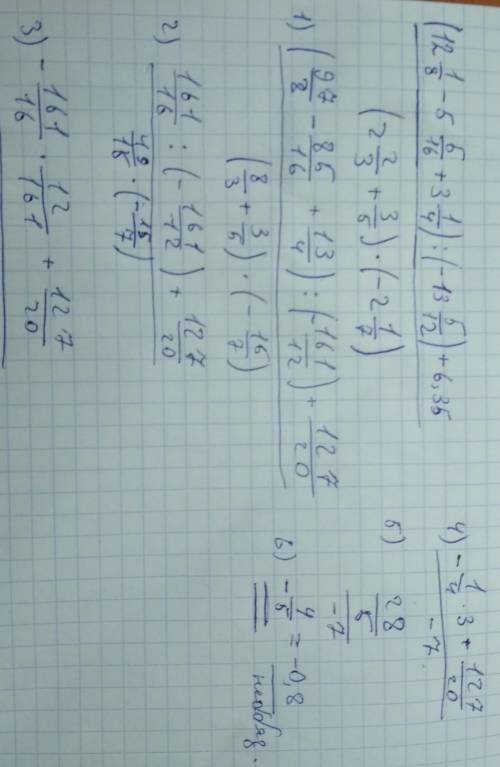 (12 1/8 - 5 5/16 + 3 1/4) : (-13 5/12) + 6,35
(2 2/3 + 3/5) · (-2 1/7)
1) (97/8 - 85/16 + 13/4) : (-161/12) + 127/20
(8/3 + 3/5) · (-15/7)
2) 161/16 : (-161/12) + 127/20
49/15 · (-15/7)
3) -161/16 · 12/161 + 127/20
4) -1/4 · 3 + 127/20
-7
5) 28/5
-7
6) -4/5 = -0,8 необяз.